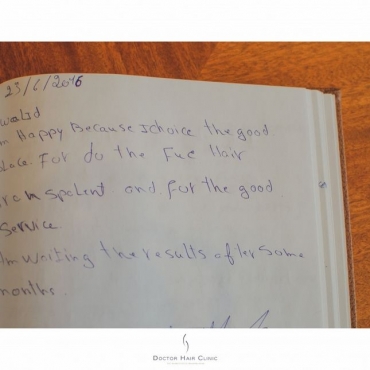 23/6/2016
walid
m Happy Because I choice the good
place. For do the Fue Hair
transpolent and for the good
service
I'm waiting the results after some
months.
DOCTOR HAIR CLINIC